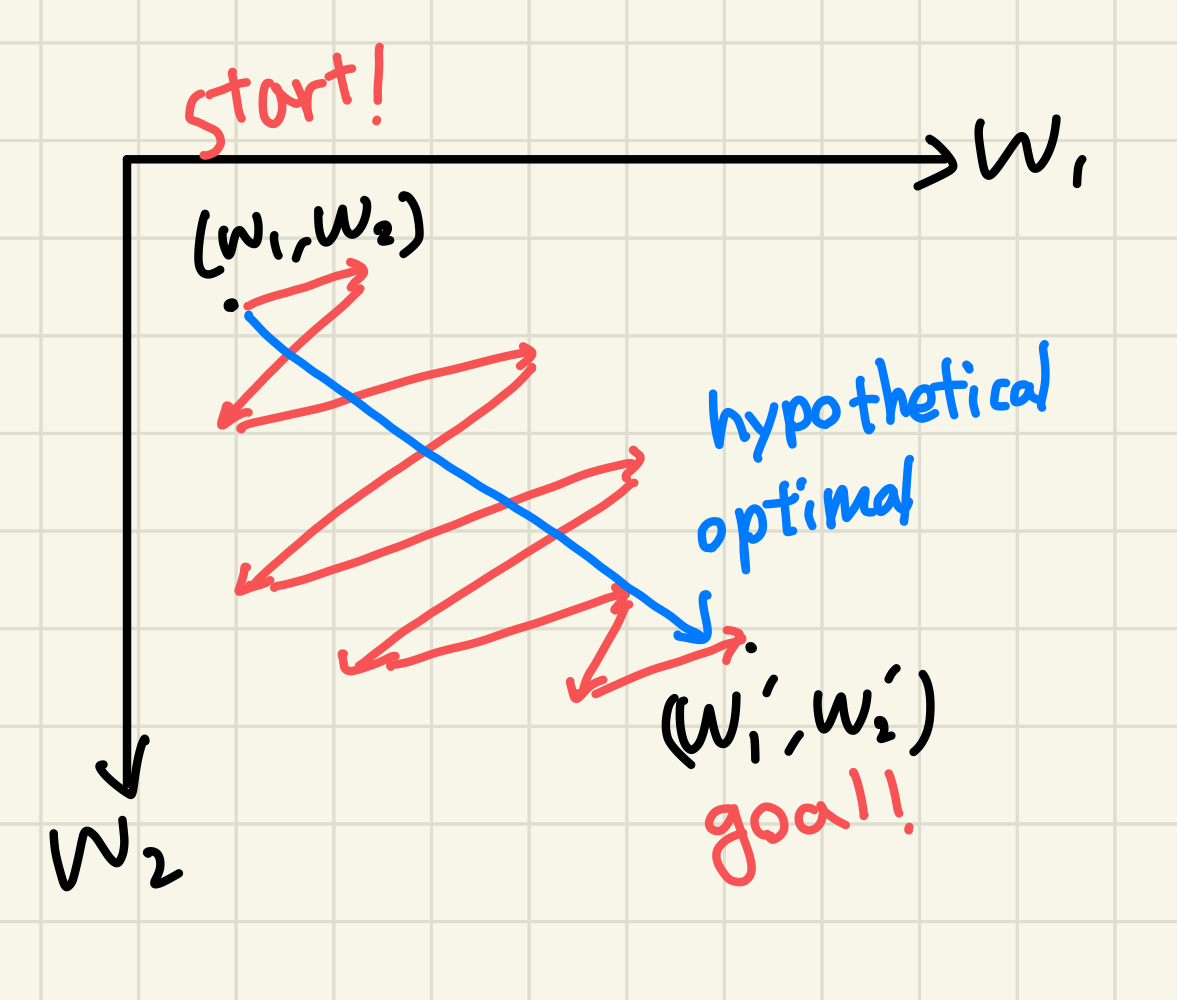 start!
W₁
(W₁, W₂)
hypothetical
optimal
(W₁', W₂')
goal!
W₂